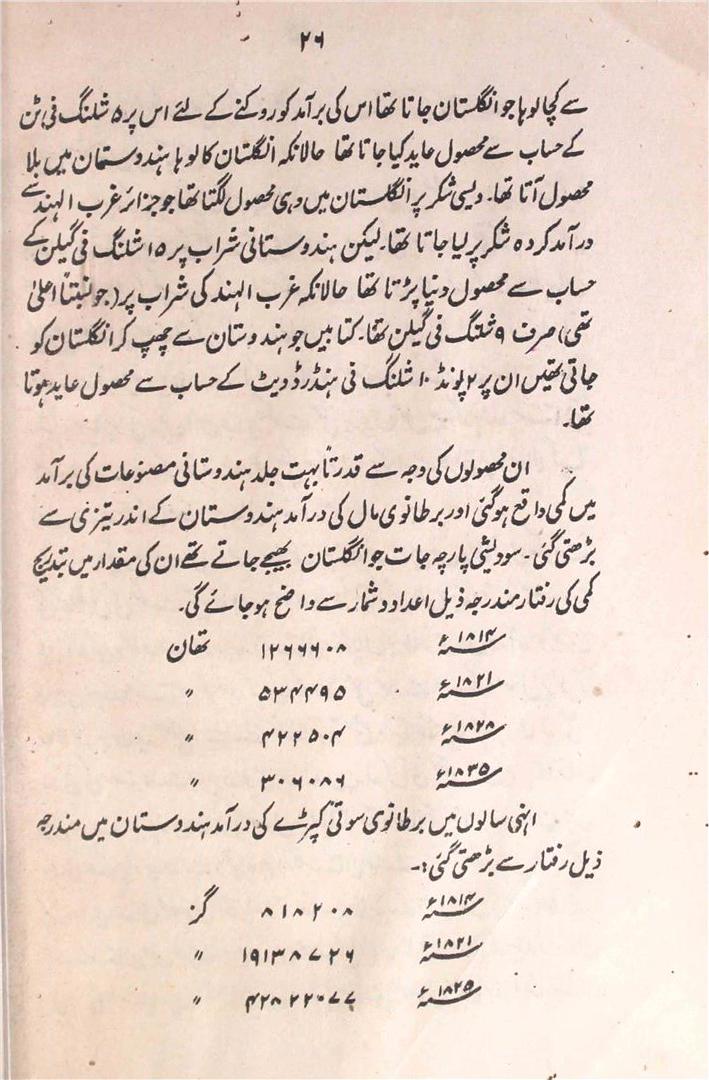 ۲۶
سے کچا لوہا جو انگلستان جاتا تھا اس کی برآمد کو روکنے کے لئے اس پر ۵ شلنگ فی ٹن
کے حساب سے محصول عاید کیا جاتا تھا حالانکہ انگلستان کا لوہا ہندوستان میں بلا
محصول آتا تھا۔ دیسی شکر پر انگلستان میں وہی محصول لگتا تھا جو جزائر غرب الہند سے
درآمد کردہ شکر پر لیا جاتا تھا۔ لیکن ہندوستانی شراب پر ۱۵ شلنگ فی گیلن کے
حساب سے محصول دینا پڑتا تھا حالانکہ غرب الہند کی شراب پر (جو نسبتاً اعلیٰ
تھی) صرف ۹ شلنگ فی گیلن تھا۔ کتابیں جو ہندوستان سے چھپ کر انگلستان کو
جاتی تھیں ان پر ۲ پونڈ ۱۰ شلنگ فی ہنڈرڈ ویٹ کے حساب سے محصول عاید ہوتا
تھا۔
ان محصولوں کی وجہ سے قدرتاً بہت جلد ہندوستانی مصنوعات کی برآمد
میں کمی واقع ہو گئی اور برطانوی مال کی درآمد ہندوستان کے اندر تیزی سے
بڑھتی گئی۔ سودیشی پارچہ جات جو انگلستان بھیجے جاتے تھے ان کی مقدار میں بتدریج
کمی کی رفتار مندرجہ ذیل اعداد و شمار سے واضح ہو جائے گی۔
سنہ ۱۸۱۴ء ۱۲۶۶۶۰۸ تھان
سنہ ۱۸۲۱ء ۵۳۴۴۹۵ "
سنہ ۱۸۲۸ء ۴۲۲۵۰۴ "
سنہ ۱۸۳۵ء ۳۰۶۰۸۶ "
انہی سالوں میں برطانوی سوتی کپڑے کی درآمد ہندوستان میں مندرجہ
ذیل رفتار سے بڑھتی گئی:۔
سنہ ۱۸۱۴ء ۸۱۸۲۰۸ گز
سنہ ۱۸۲۱ء ۱۹۱۳۸۷۲۶ "
سنہ ۱۸۲۵ء ۴۲۸۲۲۰۷۷ "